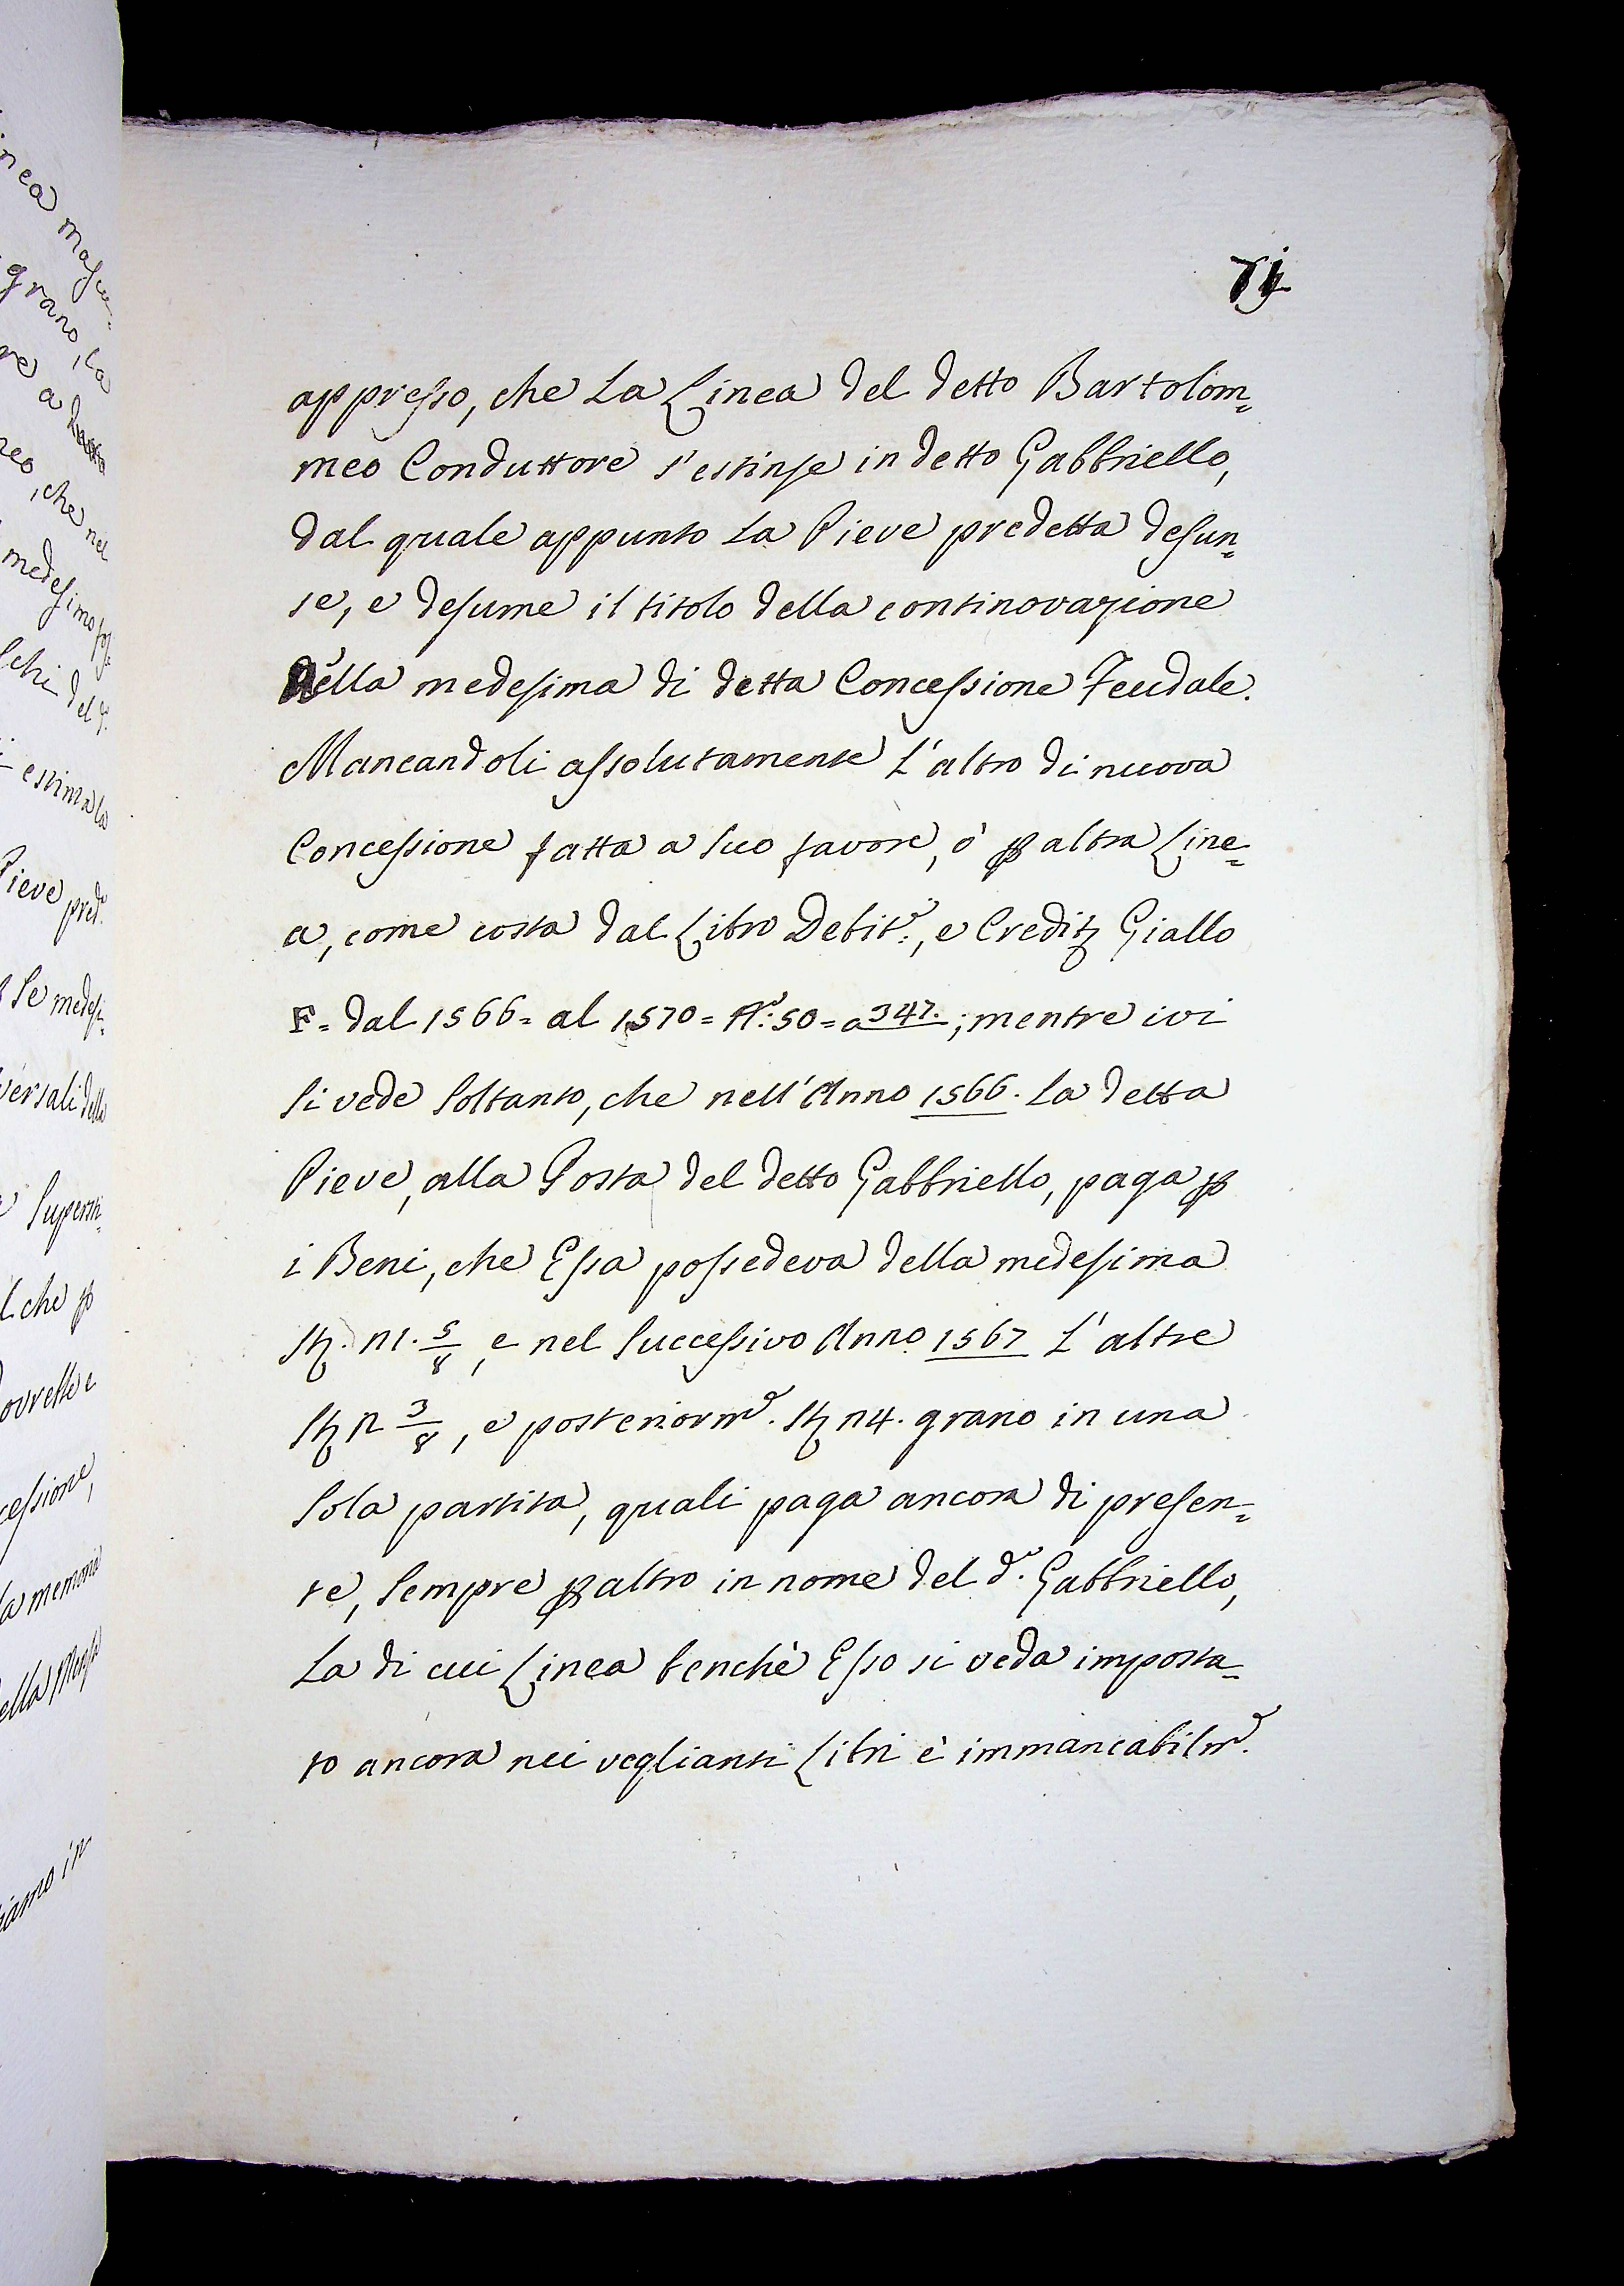 71
appresso, che La Linea del detto Bartolom=
meo Conduttore s'estinse in detto Gabbriello,
dal quale appunto La Pieve predetta desun=
se, e desume il titolo della continovazione
della medesima di detta Concessione Feudale.
Mancandoli assolutamente L'altro di nuova
Concessione fatta a suo favore, ò ꝑ altra Line=
a, come costa dal Libro Debit.ri, e Credit. Giallo
F= dal 1566= al 1570= N.o: 50= a 347.; mentre ivi
si vede soltanto, che nell'Anno 1566. La detta
Pieve, alla Posta del detto Gabbriello, paga ꝑ
i Beni, che Essa possedeva della medesima
St. n 1. 5/8, e nel successivo Anno 1567 L'altre
St n 3/8, e posteriorm.e St n 4. grano in una
sola partita, quali paga ancora di presen=
te, sempre ꝑaltro in nome del d.o Gabbriello,
La di cui Linea benchè Esso si veda imposta=
to ancora nei veglianti Libri è immancabilm.e